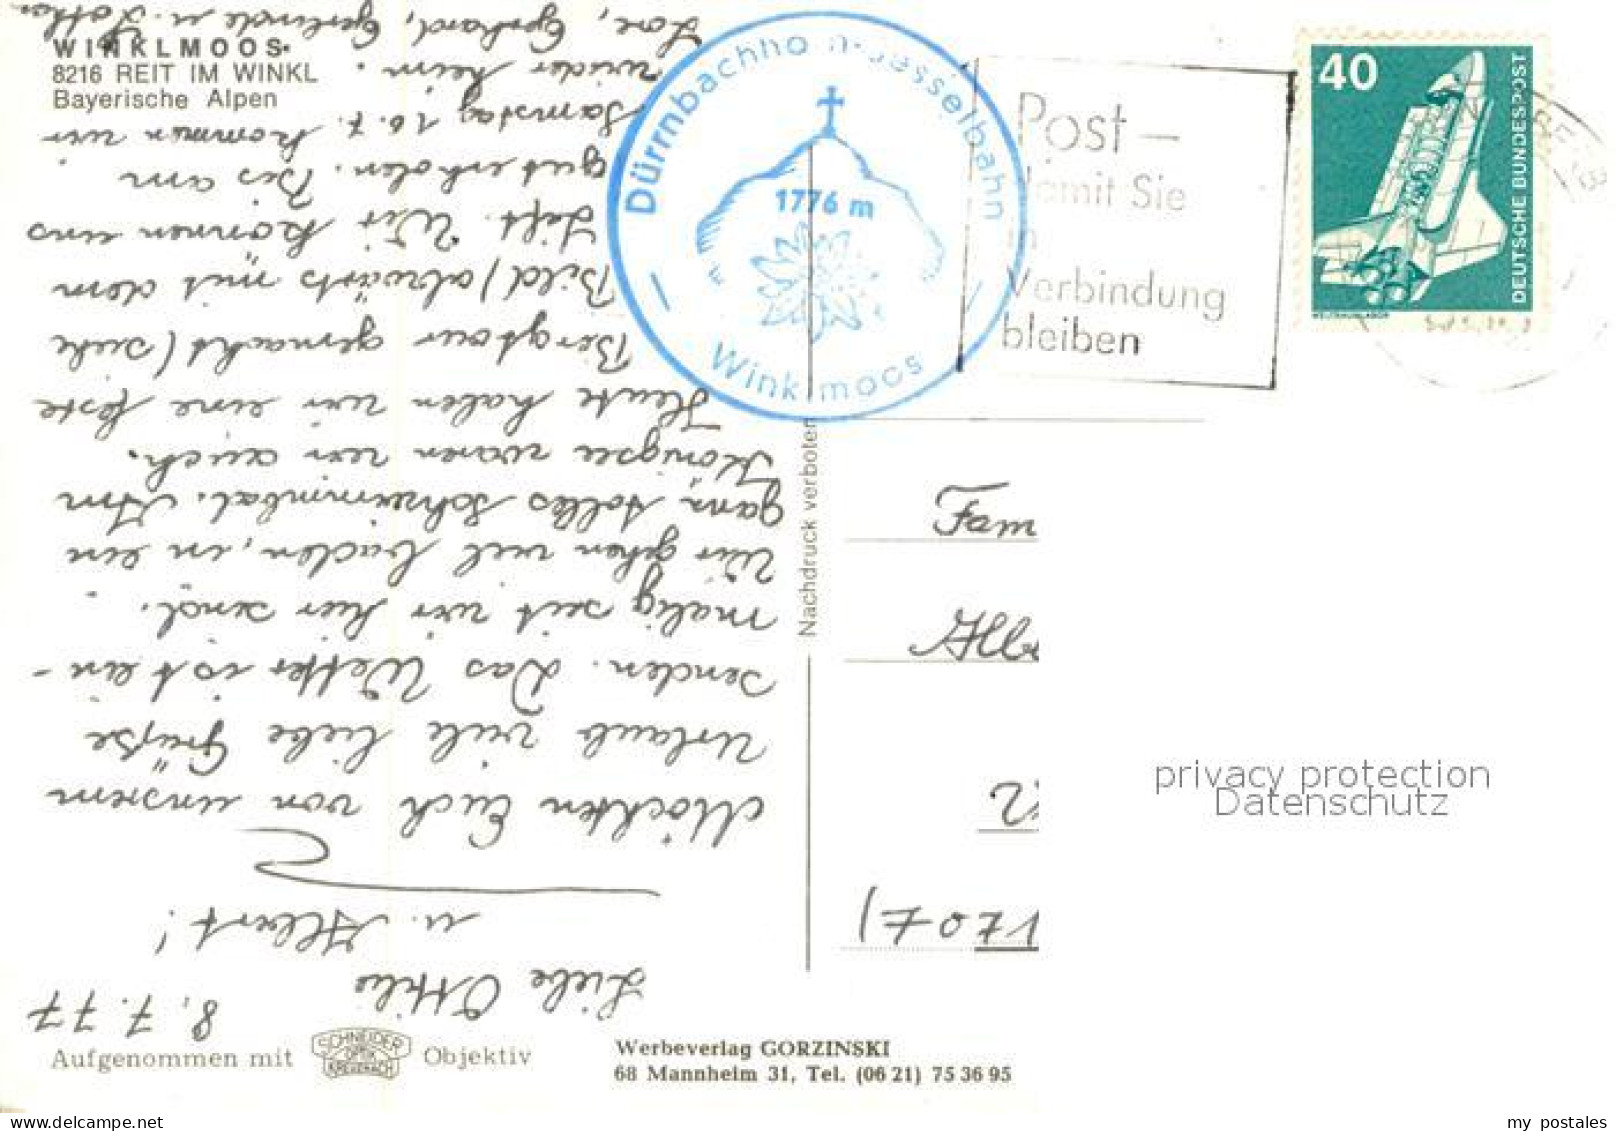 WINKLMOOS
8216 REIT IM WINKL
Bayerische Alpen
8.7.77
Liebe Ottilie
u. Albert!
Möchten Euch von unserem
Urlaub viele liebe Grüße
senden. Das Wetter ist ein-
malig seit wir hier sind.
Wir gehen viel baden, in ein
ganz tolles Schwimmbad. Am
Königsee waren wir auch.
Heute haben wir eine feste
Bergtour gemacht (siehe
Bild) abwärts mit dem
Lift. Wir können uns
gut erholen. Bis am
Samstag 16.7. kommen wir
wieder heim.
Gerhard, Gerlinde u. Lothar
Dürrnbachho sesselbahn
1776 m
Winklmoos
Post –
damit Sie
in
Verbindung
bleiben
40
DEUTSCHE BUNDESPOST
WELTRAUMLABOR
Nachdruck verboten
Fam
Albe
privacy protection
Datenschutz
Aufgenommen mit
SCHNEIDER
OPTIK
KREUZNACH
Objektiv
Werbeverlag GORZINSKI
68 Mannheim 31, Tel. (06 21) 75 36 95
delcampe.net
my_postales